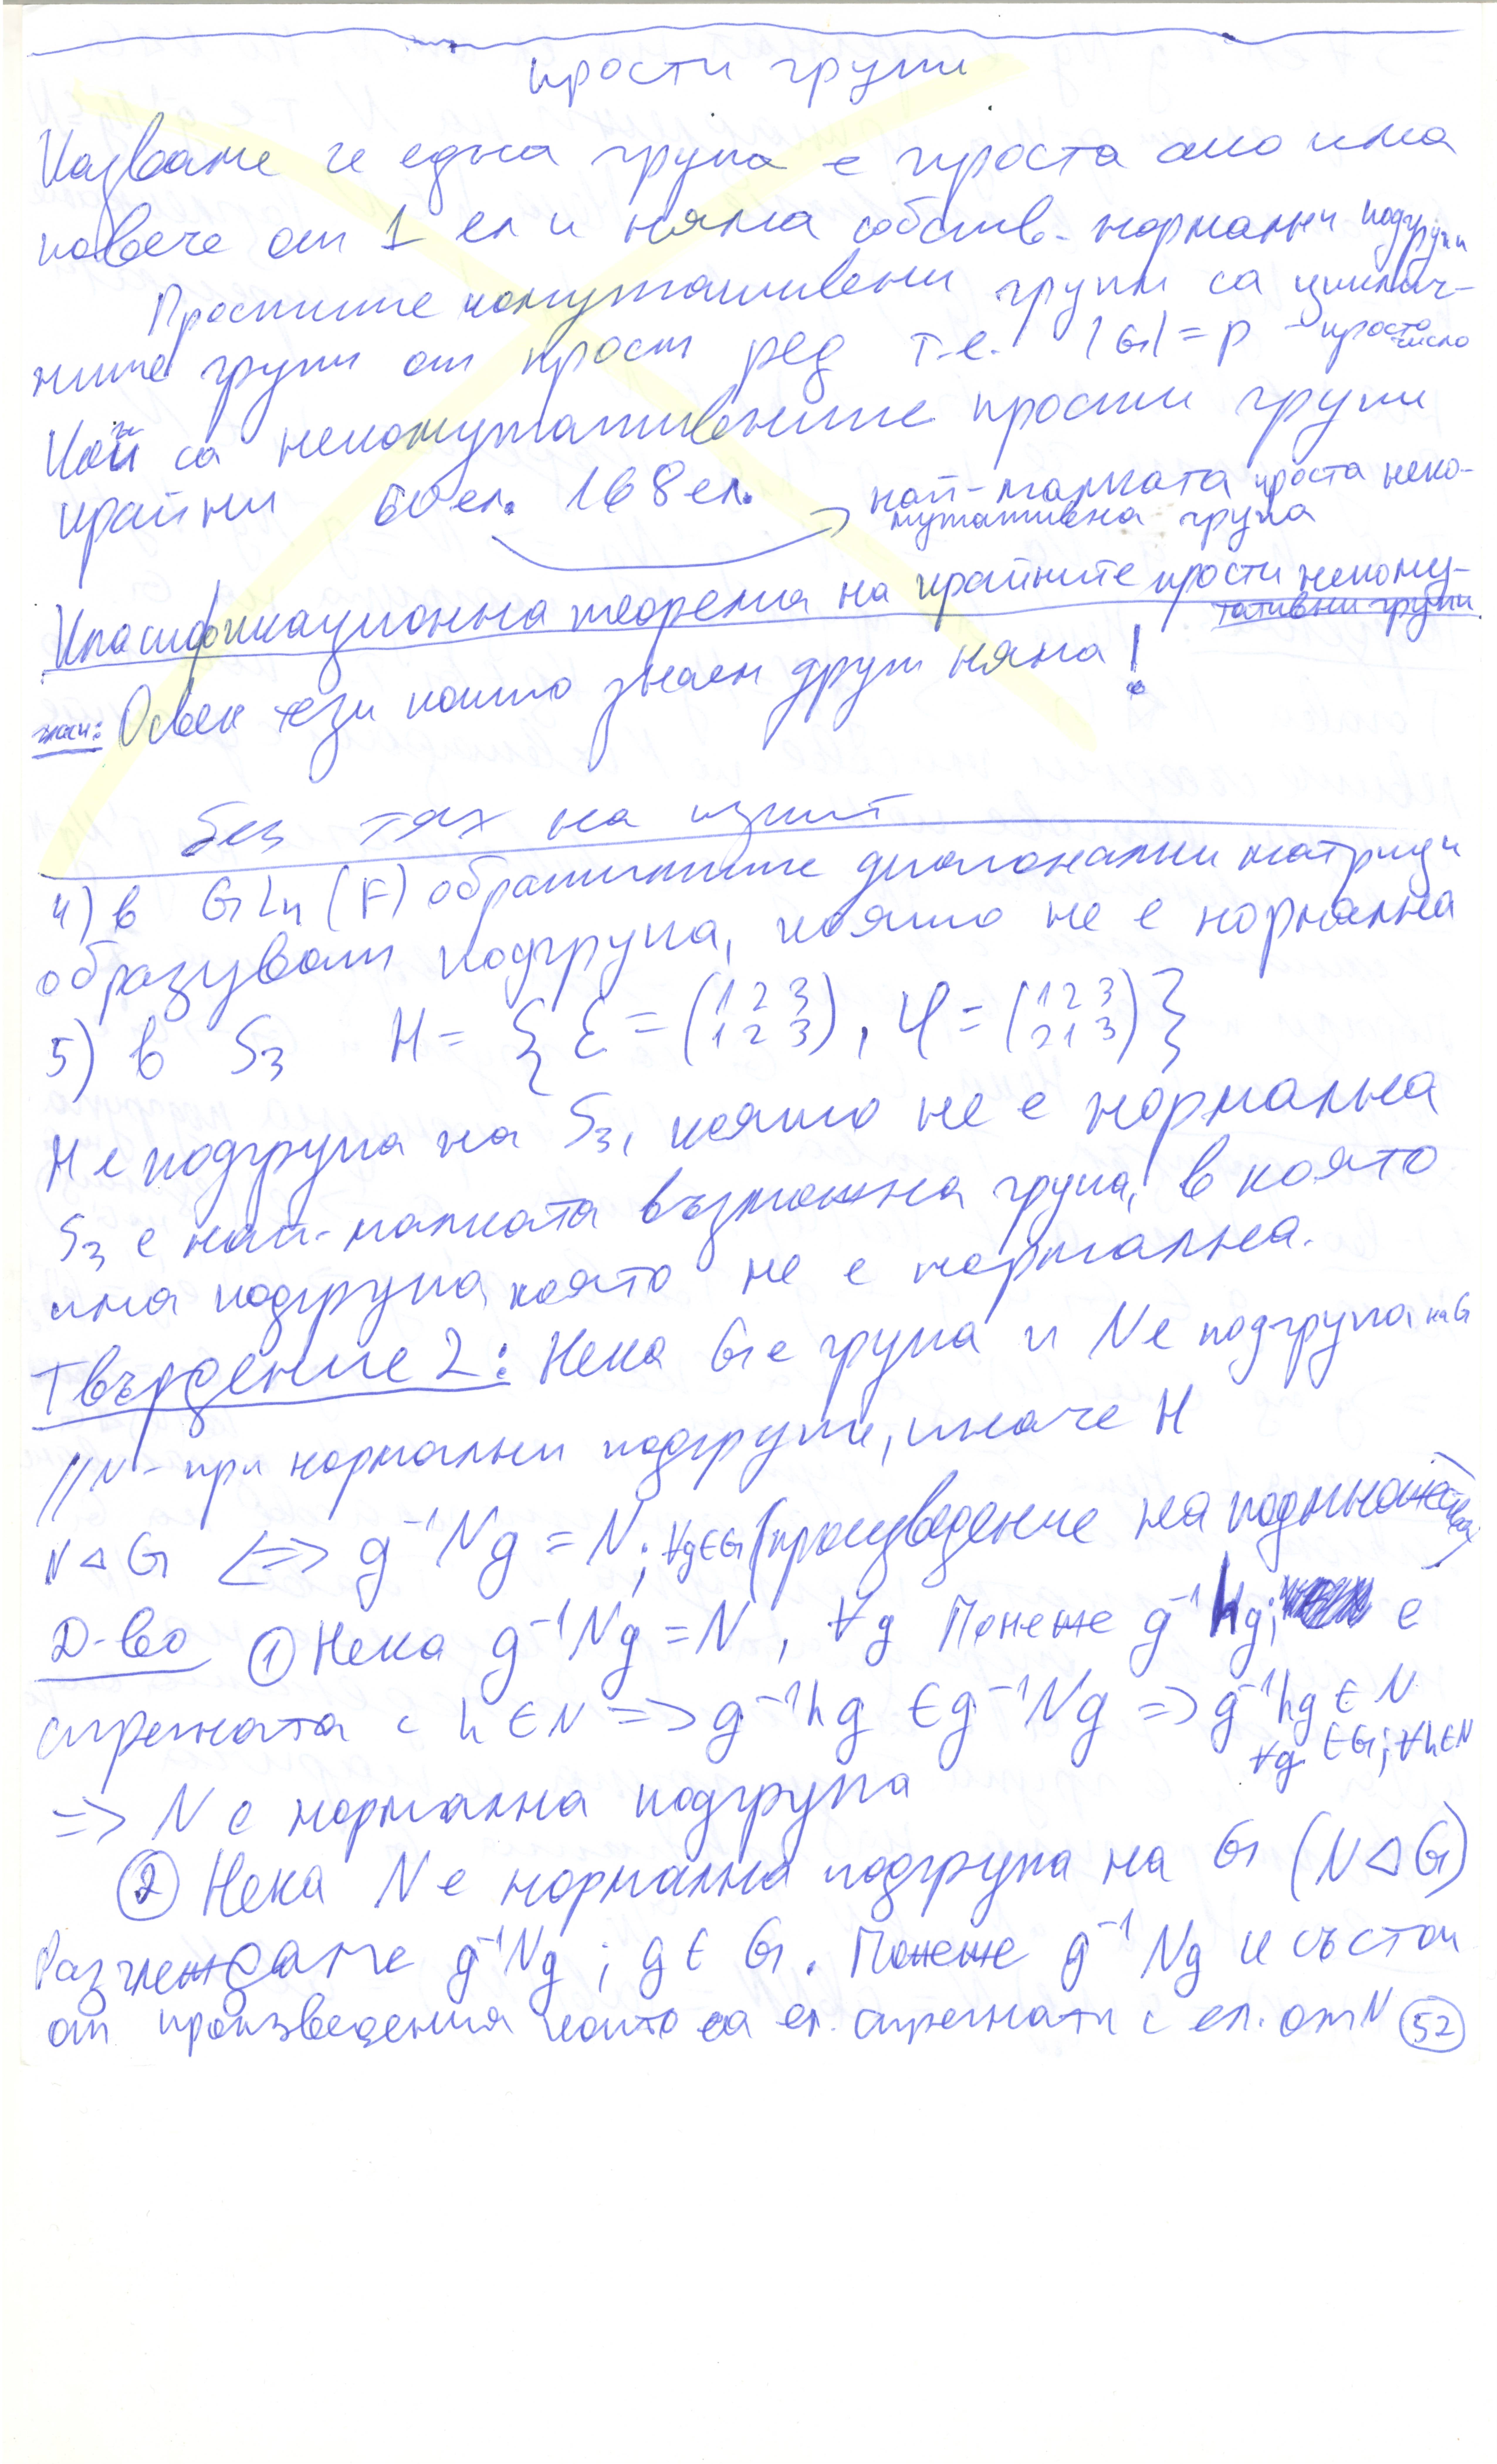 прости групи
Казваме че една група е проста ако има
повече от 1 ел и няма собств. нормални подгрупи
Простите комутативени групи са циклич-
ните групи от прост ред т.е. |G| = p - просто число
Кои са некомутативните прости групи
крайни 60 ел. 168 ел. най-малката проста неко-
мутативна група
Класификационна теорема на крайните прости некому-
тативни групи
Освен тези които знаем други няма!
без тях на изпит
4) в GLn (F) обратимите диагонални матрици
образуват подгрупа, която не е нормална
5) в S3 H = { ε = (1 2 3 / 1 2 3), φ = (1 2 3 / 2 1 3) }
H е подгрупа на S3, която не е нормална
S3 е най-малката възможна група, в която
има подгрупа която не е нормална.
Твърдение 2: Нека G е група и N е подгрупа на G
// N - при нормални подгрупи, иначе H
N ⊲ G <=> g⁻¹Ng = N; ∀g∈G (произведение на подмножества)
Д-во ① Нека g⁻¹Ng = N, ∀g Понеже g⁻¹hg; е
спрегната с h ∈ N => g⁻¹hg ∈ g⁻¹Ng => g⁻¹hg ∈ N
∀g ∈ G; ∀h∈N
=> N е нормална подгрупа
② Нека N е нормална подгрупа на G (N ⊲ G)
Разглеждаме g⁻¹Ng ; g ∈ G. Понеже g⁻¹Ng и състои
от произведения които са ел. спрегнати с ел. от N 52